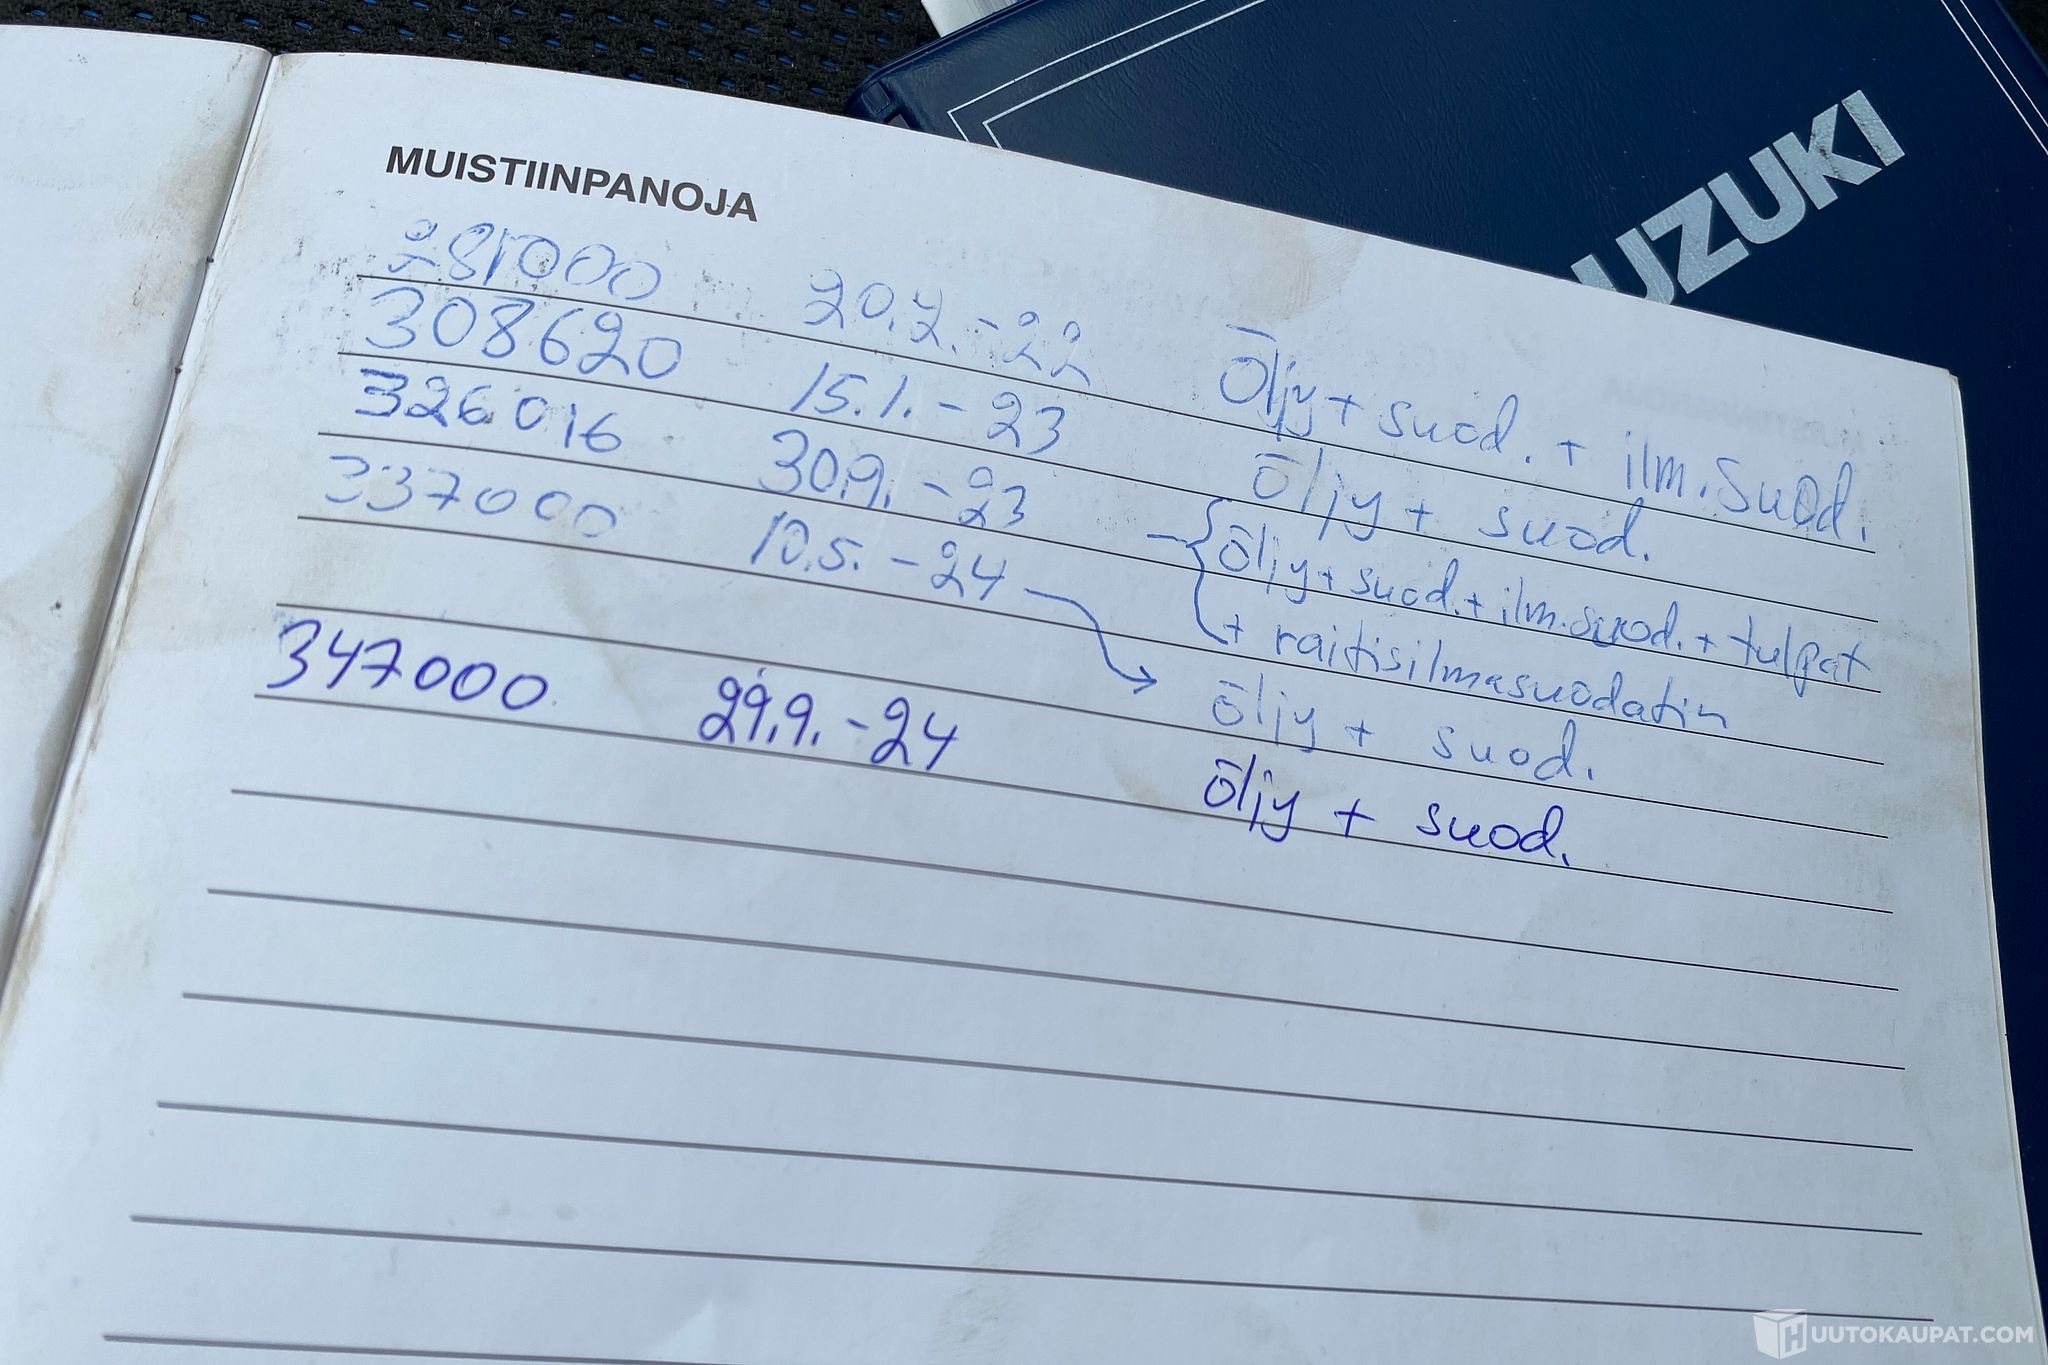 UZUKI
MUISTIINPANOJA
281000 20.2.-22 Öljy + suod. + ilm.suod.
308620 15.1.-23 öljy + suod.
326016 30.9.-23 -{öljy + suod. + ilm.suod. + tulpat
+ raitisilmasuodatin
337000 10.5.-24 → öljy + suod.
347000 29.9.-24 öljy + suod.
HUUTOKAUPAT.COM